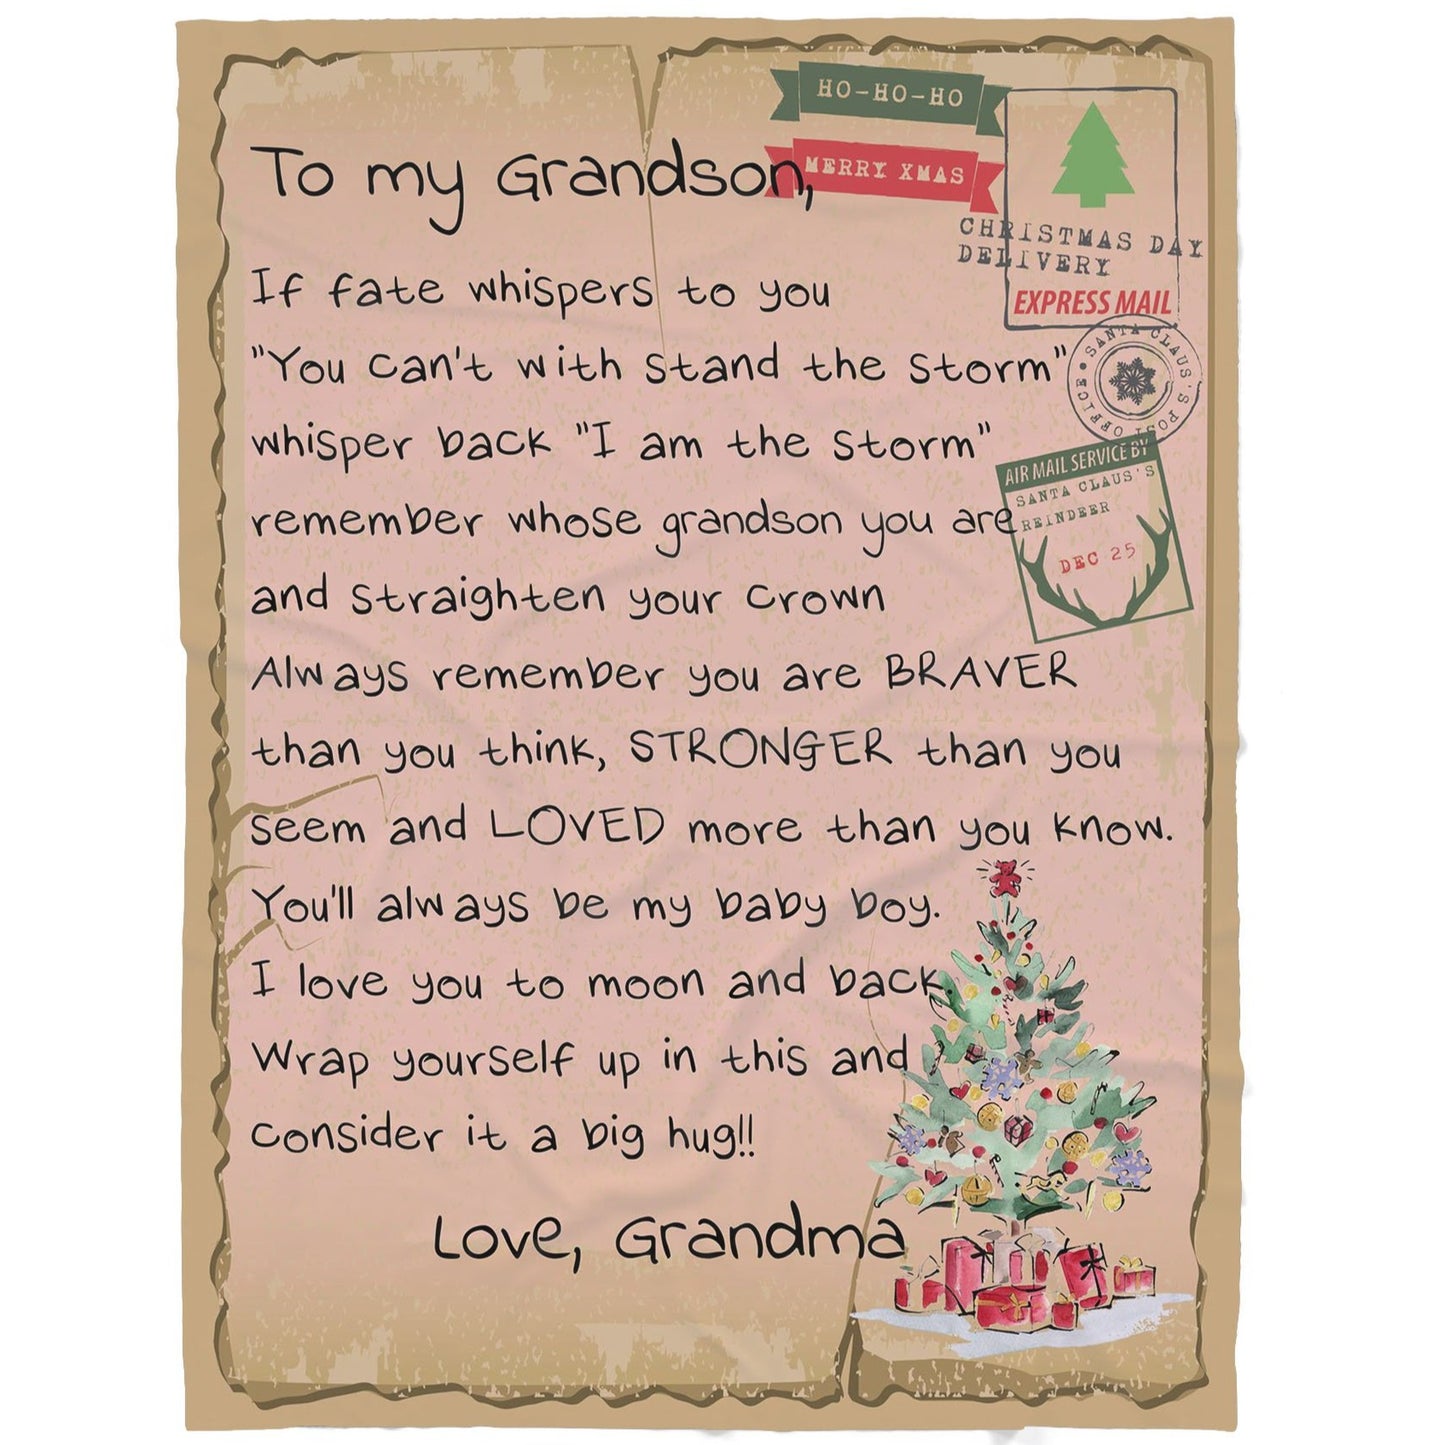 HO-HO-HO
MERRY XMAS
CHRISTMAS DAY
DELIVERY
EXPRESS MAIL
SANTA CLAUS'S POST OFFICE
AIR MAIL SERVICE BY
SANTA CLAUS'S
REINDEER
DEC 25
To my Grandson,
If fate whispers to you
"You can't with stand the storm"
whisper back "I am the storm"
remember whose grandson you are
and straighten your crown
Always remember you are BRAVER
than you think, STRONGER than you
seem and LOVED more than you know.
You'll always be my baby boy.
I love you to moon and back.
Wrap yourself up in this and
consider it a big hug!!
Love, Grandma